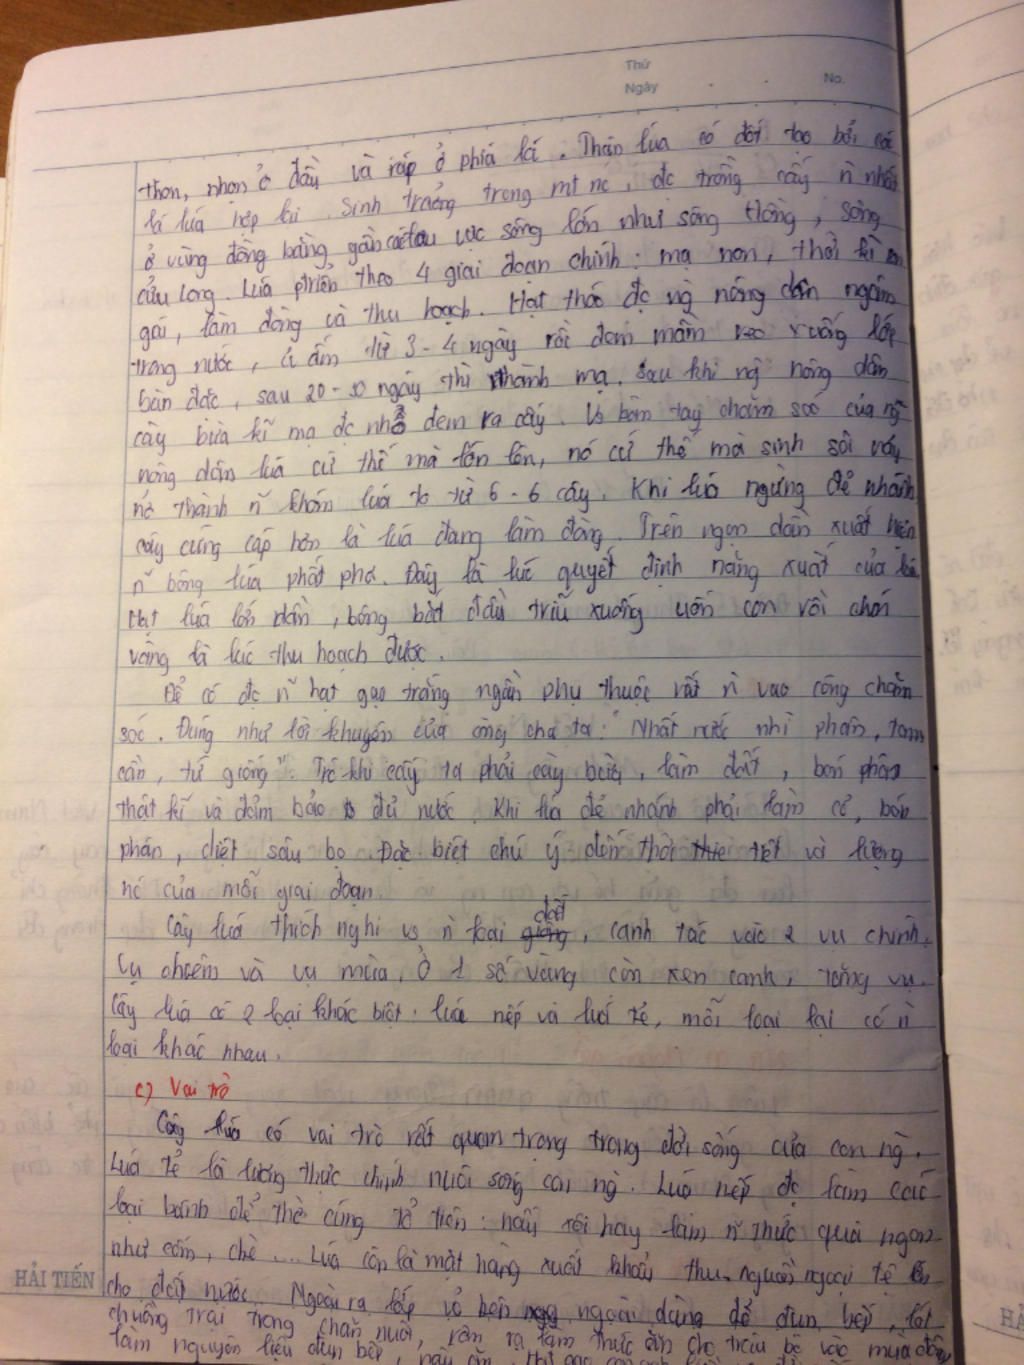 Thứ
Ngày . . No.
thon, nhọn ở đầu và ráp ở phía lá. Thân lúa có đốt tạo bởi các
lá lúa hợp lại. Sinh trưởng trong mt nc, đc trồng cấy n nhất
ở vùng đồng bằng gần các lưu vực sông lớn như sông Hồng, sông
cửu Long. Lúa ptriển theo 4 giai đoạn chính: mạ non, thời kì con
gái, làm đòng và thu hoạch. Hạt thóc đc ng nông dân ngâm
trong nước, ủ ấm từ 3 - 4 ngày rồi đem mầm reo xuống lớp
bùn đặc, sau 20 - 30 ngày thì thành mạ. Sau khi ng nông dân
cày bừa kĩ mạ đc nhổ đem ra cấy. Vs bàn tay chăm sóc của ng
nông dân lúa cứ thế mà lớn lên, nó cứ thế mà sinh sôi nảy
nở thành n~ khóm lúa to từ 6 - 6 cây. Khi lúa ngừng đẻ nhánh
cây cứng cáp hơn là lúa đang làm đòng. Trên ngọn dần xuất hiện
n~ bông lúa phất phơ. Đây là lúc quyết định năng xuất của lúa
Hạt lúa lớn dần, bông bắt đầu trĩu xuống uốn con rồi chín
vàng là lúc thu hoạch được.
Để có đc n~ hạt gạo trắng ngần phụ thuộc rất n vào công chăm
sóc. Đúng như lời khuyên của ông cha ta: "Nhất nước nhì phân, tam
cần, tứ giống". Trc khi cấy ta phải cày bừa, làm đất, bón phân
thật kĩ và đảm bảo đủ nước. Khi lúa đẻ nhánh phải làm cỏ, bón
phân, diệt sâu bọ. Đặc biệt chú ý đến thời tiết và lượng
nc của mỗi giai đoạn.
Cây lúa thích nghi vs n loại đất, canh tác vào 2 vụ chính.
Vụ chiêm và vụ mùa. Ở 1 số vùng còn xen canh, tăng vụ.
Cây lúa có 2 loại khác biệt: lúa nếp và lúa tẻ, mỗi loại lại có n
loại khác nhau.
c) Vai trò
Cây lúa có vai trò rất quan trọng trong đời sống của con ng.
Lúa tẻ là lương thực chính nuôi sống con ng. Lúa nếp đc làm các
loại bánh để thờ cúng tổ tiên: nấu xôi hay làm n~ thức quà ngon
như cốm, chè ... Lúa còn là mặt hàng xuất khẩu thu nguồn ngoại tệ lớn
cho đất nước. Ngoài ra lớp vỏ bên ngoài dùng để đun bếp, lót
chuồng trại trong chăn nuôi, rơm rạ làm thức ăn cho trâu bò vào mùa đông
làm nguyên liệu đun bếp,
HẢI TIẾN